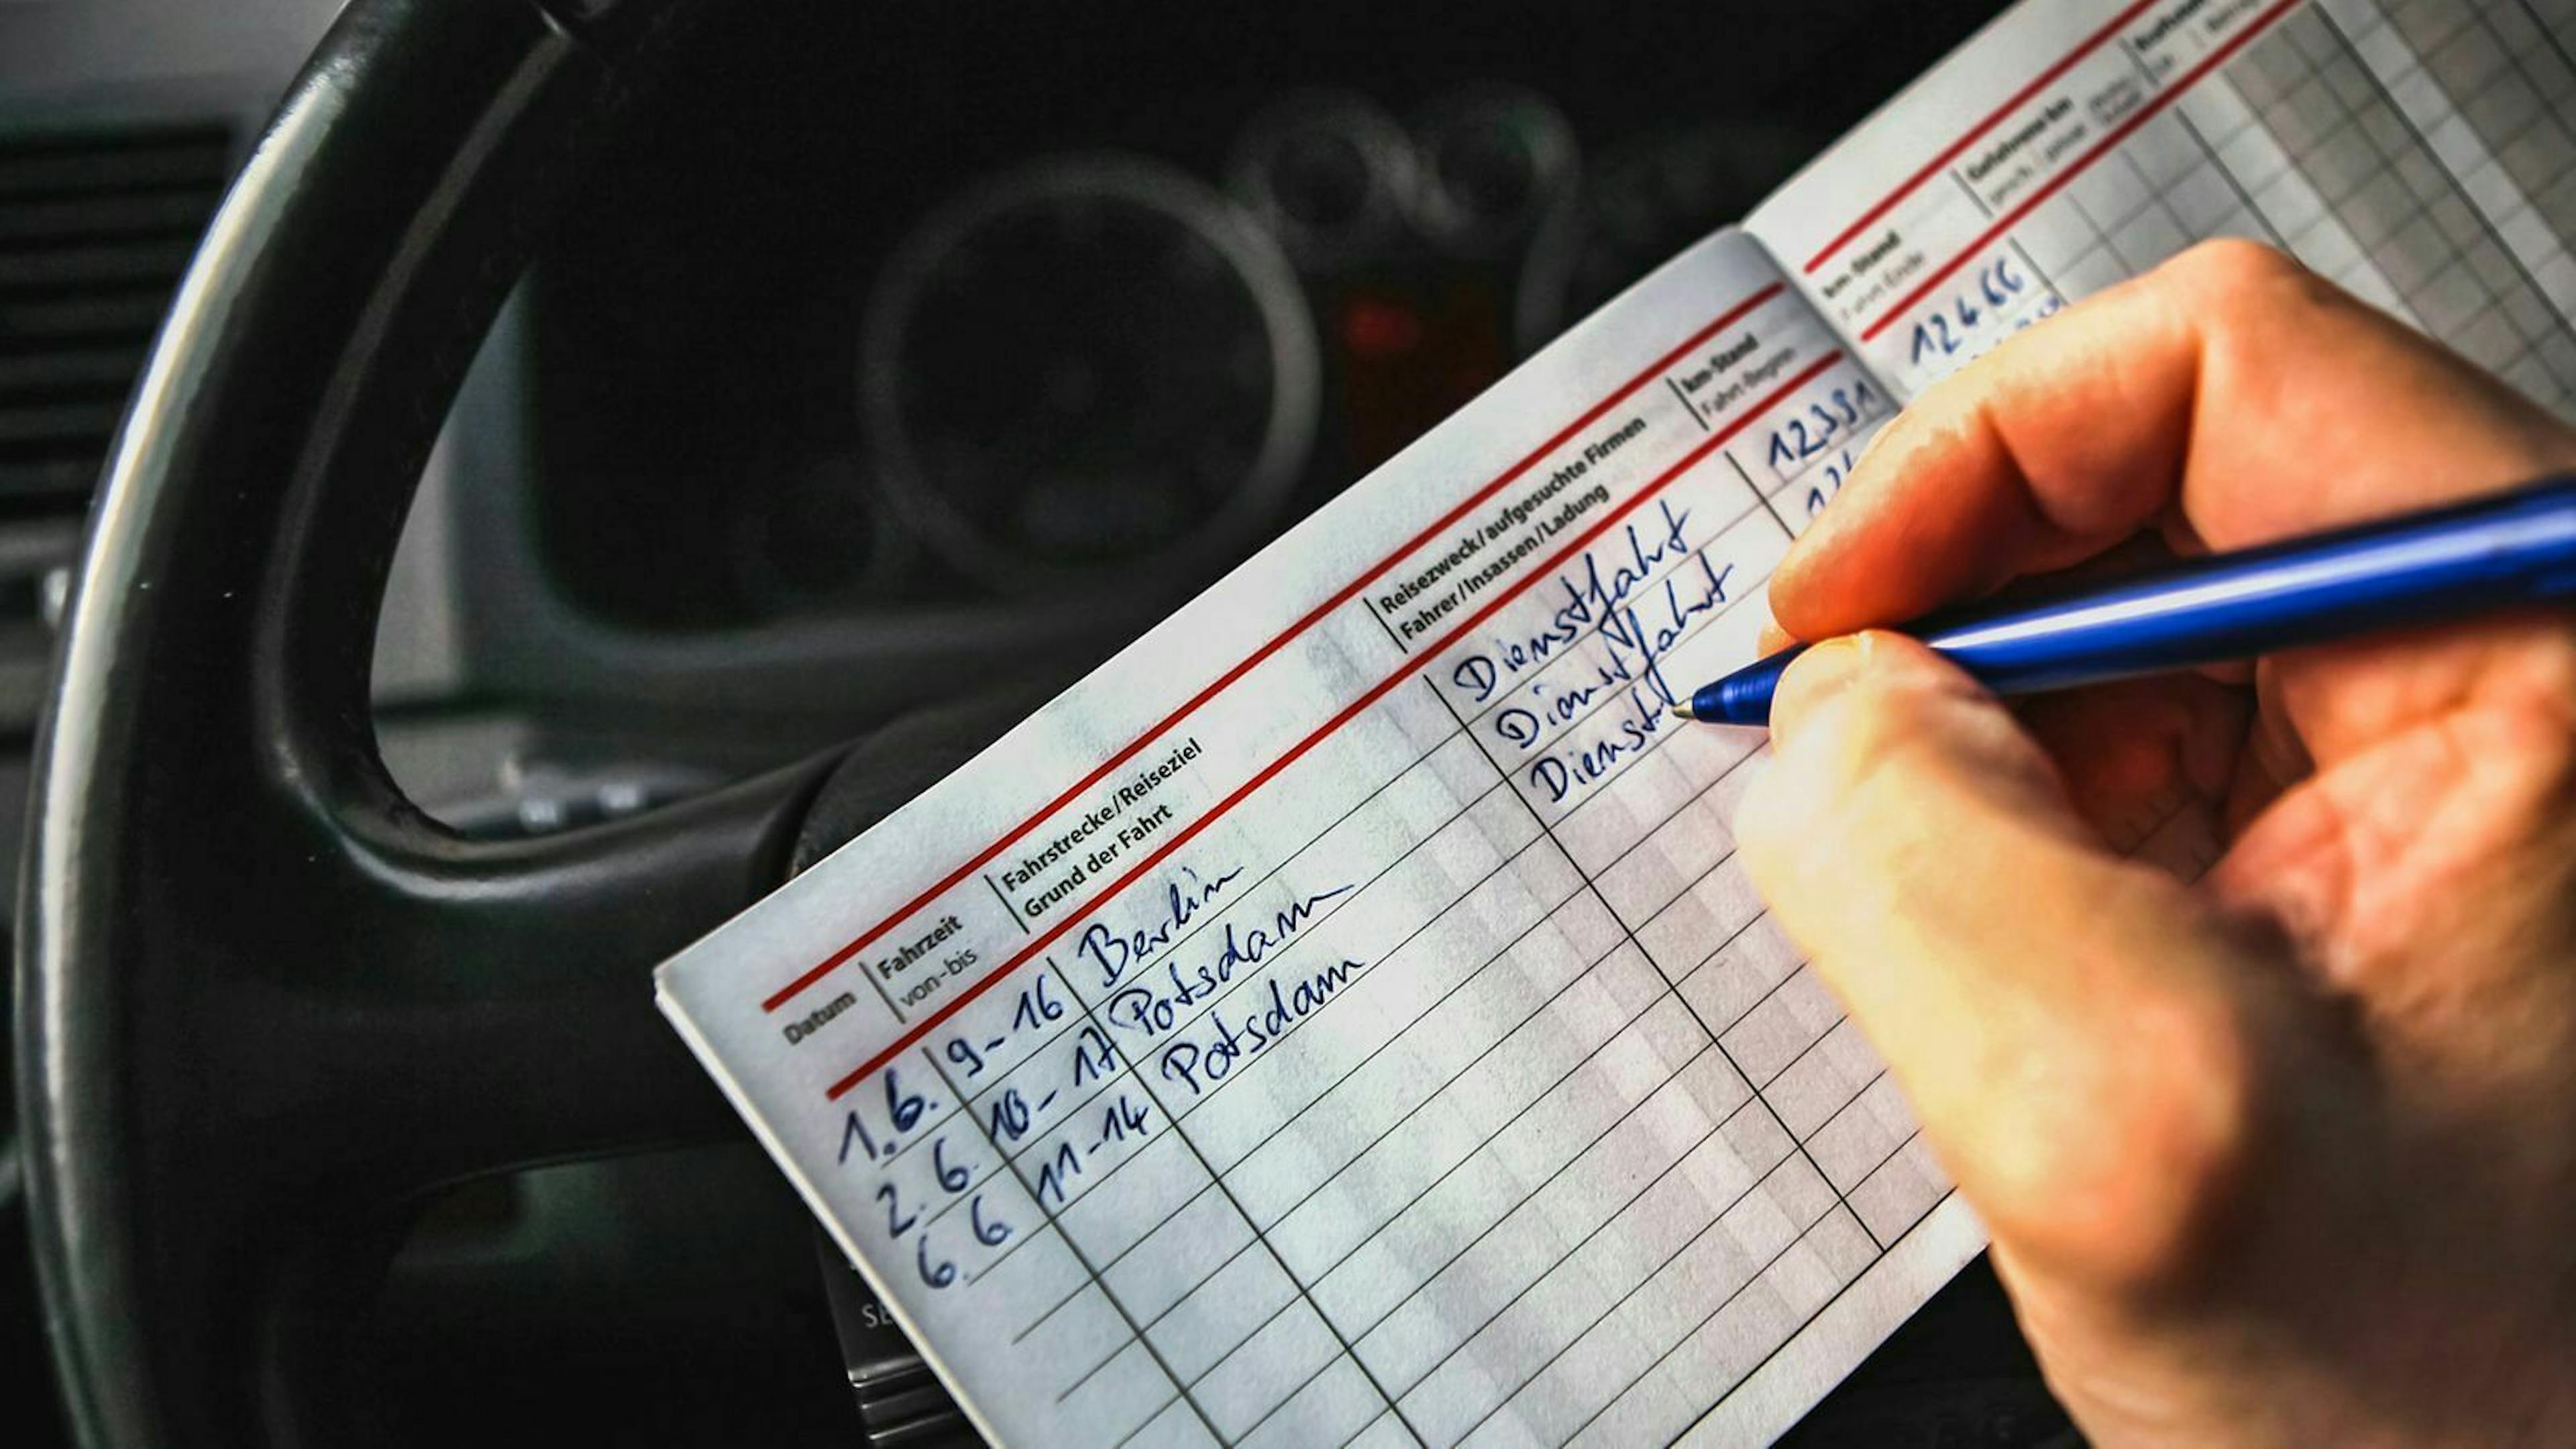 Datum Fahrzeit Fahrstrecke/Reiseziel Reisezweck/aufgesuchte Firmen km-Stand km-Stand
von-bis Grund der Fahrt Fahrer/Insassen/Ladung Fahrt-Beginn Fahrt-Ende
1.6. 9-16 Berlin Dienstfahrt 12331 12466
2.6. 10-17 Potsdam Dienstfahrt
6.6. 11-14 Potsdam Dienst